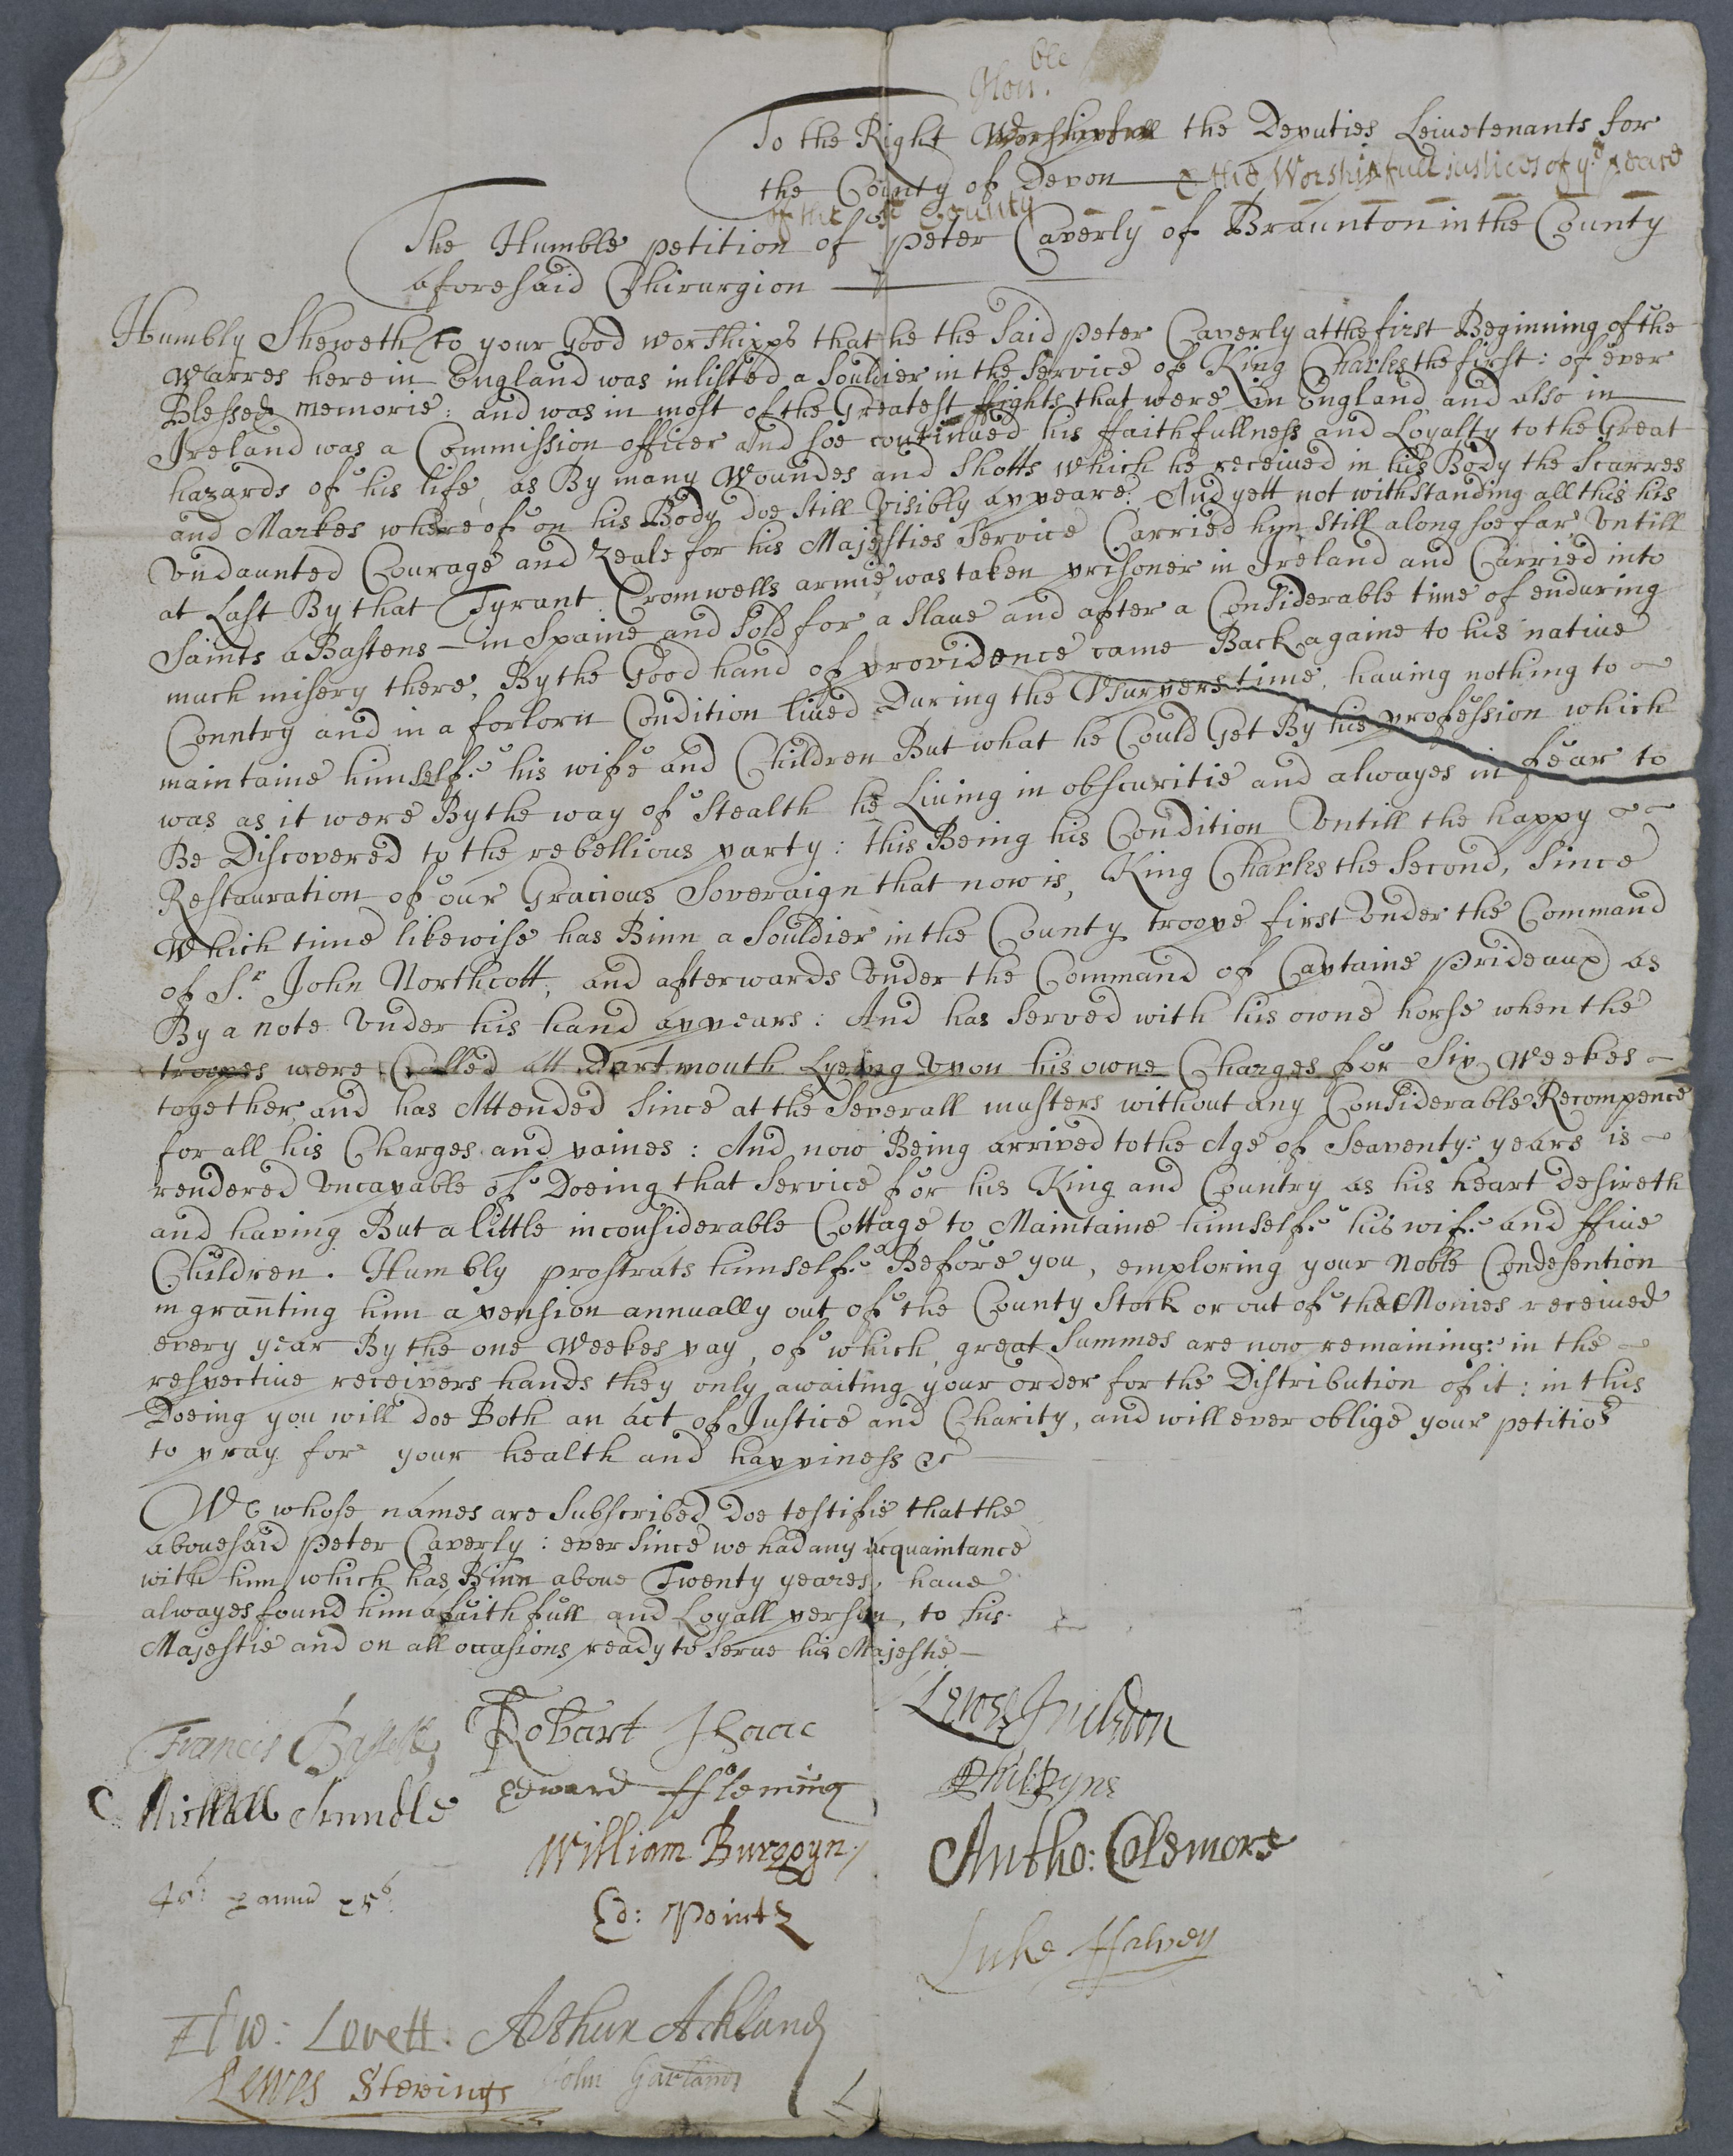 Hon:ble
To the Right Worshipfull the Deputies Leiuetenants for
the County of Devon & the Worshipfull Justices of ye peace
of the sd County
The Humble petition of peter Caverly of Braunton in the County
aforesaid Chirurgion
Humbly Sheweth to your Good worshipps that he the said peter Caverly at the first Beginning of the
Warres here in England was inlisted a Souldier in the Service of King Charles the first: of ever
Blessed memorie: and was in most of the Greatest ffights that were in England and also in
Ireland was a Commission officer and soe continued his ffaithfullness and Loyalty to the Great
hazards of his life, as By many Woundes and Shotts which he received in his Body the Scarres
and Markes whereof on his Body doe still Visibly appeare: And yett not withstanding all this his
Vndaunted Courage and Zeale for his Majesties Service Carried him still along soe far Vntill
at Last By that Tyrant Cromwells armie was taken prisoner in Ireland and Carried into
Saints a Bastens in Spaine and Sold for a Slaue and after a Considerable time of enduring
much misery there, By the Good hand of providence came Back againe to his natiue
Conntry and in a forlorn Condition liued During the Vsurpers time, hauing nothing to
maintaine himself: his wife and Children But what he Could Get By his profession which
was as it were By the way of stealth he Liuing in obscuritie and alwayes in fear to
Be Discovered to the rebellious party: this Being his Condition Vntill the happy
Restauration of our Gracious Soveraign that now is, King Charles the Second, Since
Which time likewise has Binn a Souldier in the County troope first Vnder the Command
of Sr. John Northcott, and afterwards Vnder the Command of Captaine Prideaux as
By a note Vnder his hand appears: And has Served with his owne horse when the
troopes were Called att Dartmouth Lyeing Vpon his owne Charges for Six Weekes
together, and has Attended Since at the Severall musters without any Considerable Recompence
for all his Charges and paines: And now Being arrived to the Age of Seaventy: years is
rendered Vncapable of Doeing that Service for his King and Country as his heart desireth
and having But a little inconsiderable Cottage to Maintaine himself: his wif: and ffiue
Children. Humbly prostrats himself: Before you, emploring your Noble Condesention
in granting him a pension annually out of the County Stock or out of the Monies receiued
every year By the one Weekes pay, of which, great Summes are now remaining: in the
respectiue receivers hands they only awaiting your order for the Distribution of it: in this
Doeing you will doe Both an act of Justice and Charity, and will ever oblige your petitior
to pray for your health and happiness &c
We whose names are Subscribed Doe testifie that the
abouesaid Peter Caverly: ever Since we had any acquaintance
with him which has Binn aboue Twenty yeares, haue
alwayes found him a faithfull and Loyall person, to his
Majestie and on all occasions ready to Serue his Majestie
Francis Bassett Robart Isaac Lewes
Edward ffleming Phil:
William Burgoyn Antho: Colemore
Ed: Pointz
Luke
Edw: Lovett. Arthur Ackland
Lewes Stevings John Garland